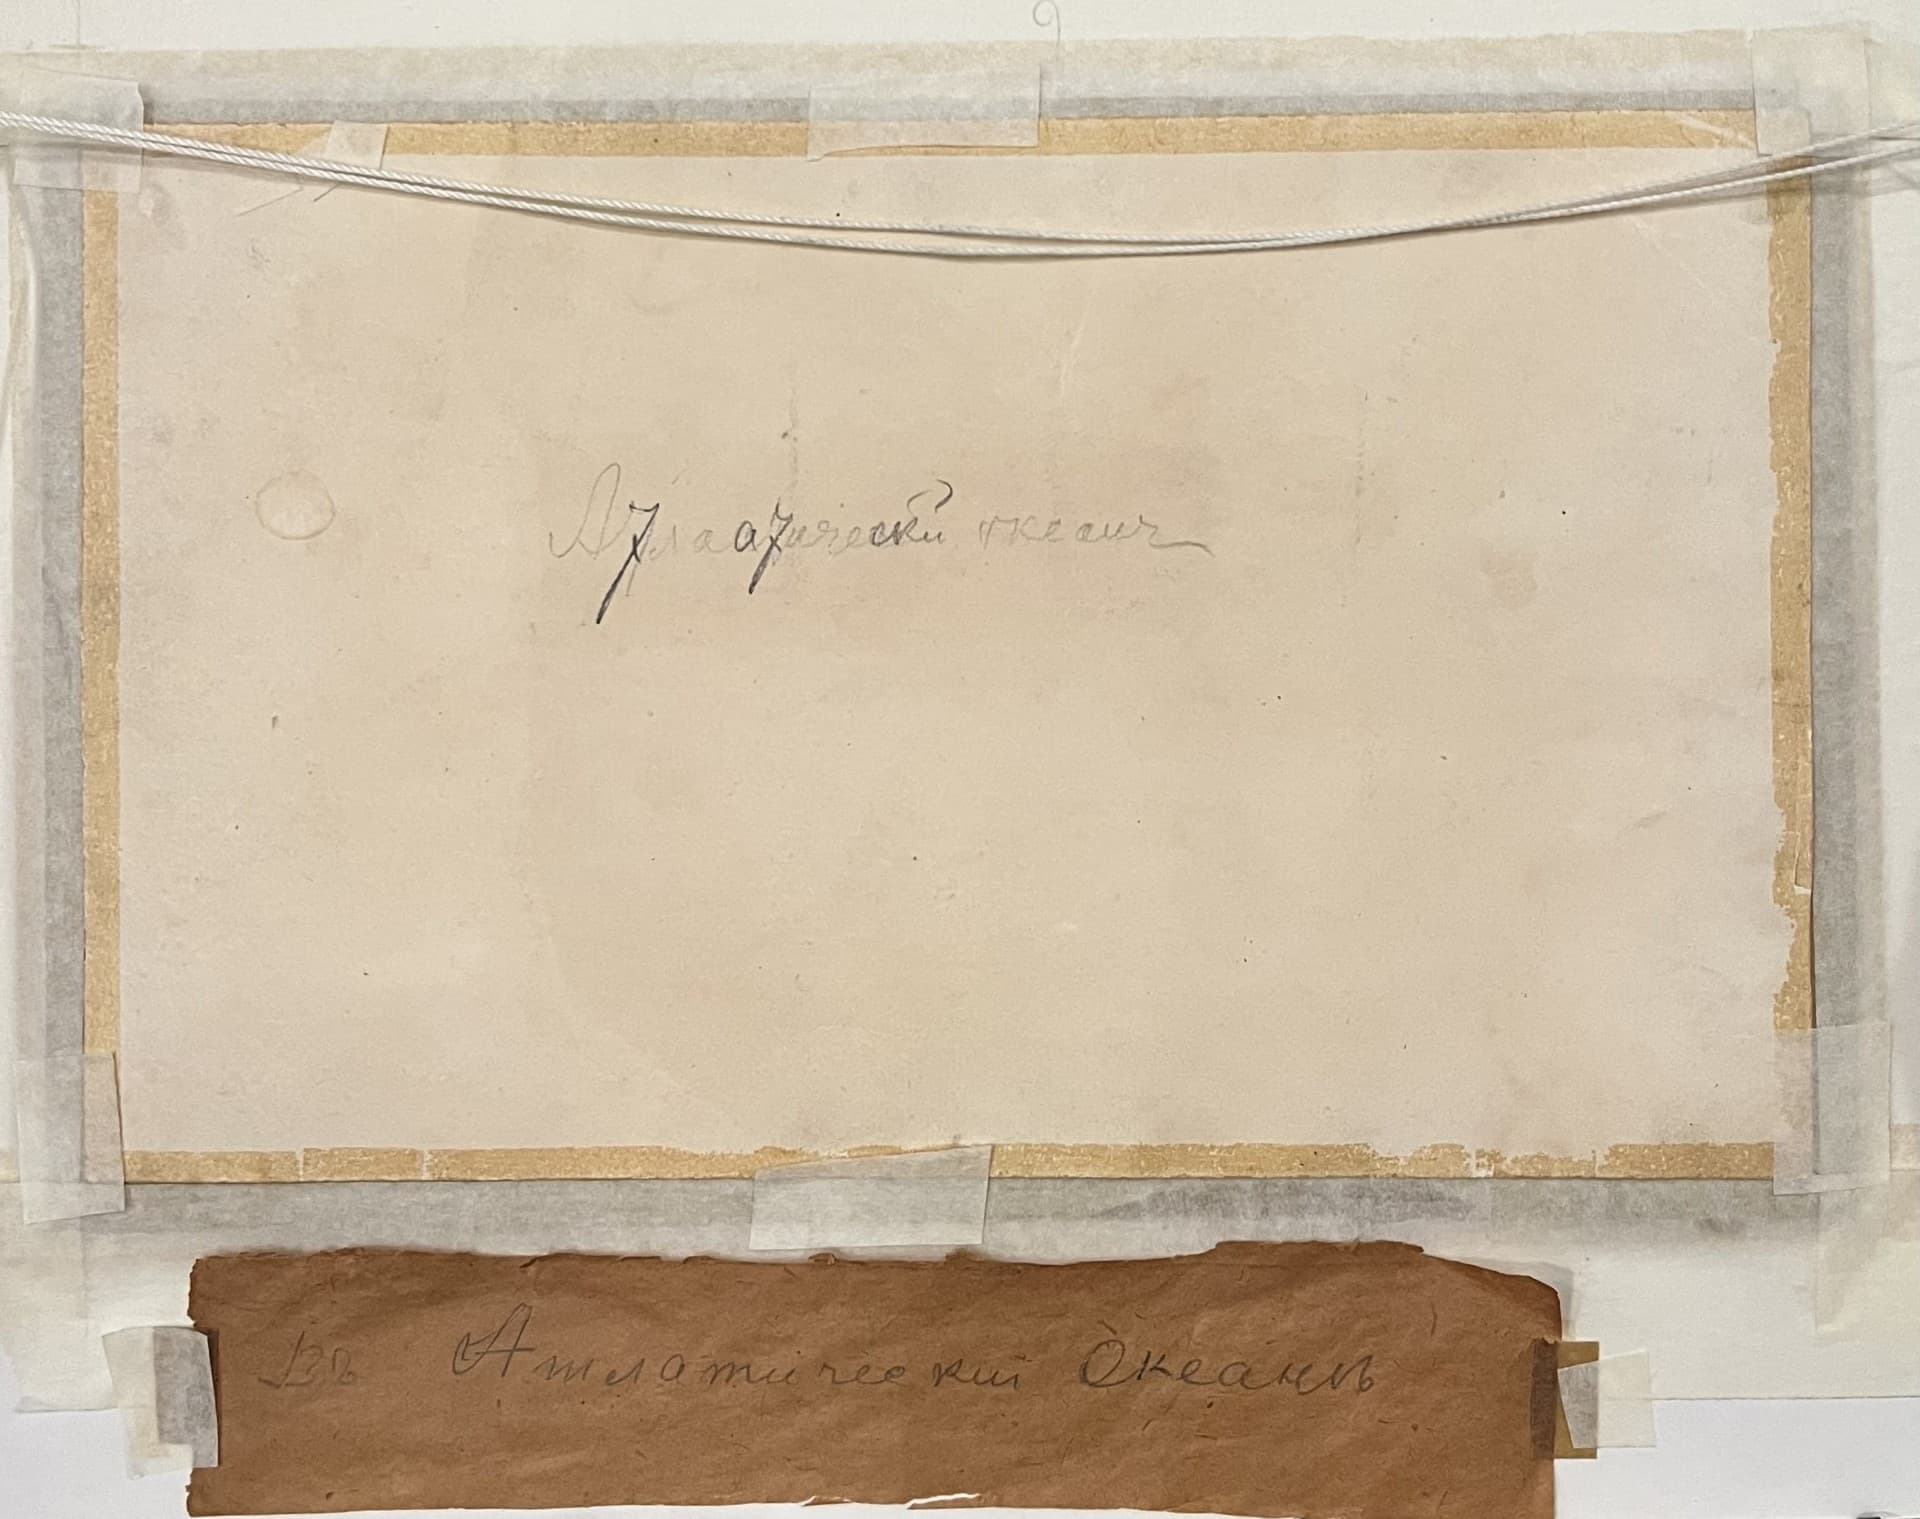 Атлаатически океанъ
Въ Атлатический Океанъ